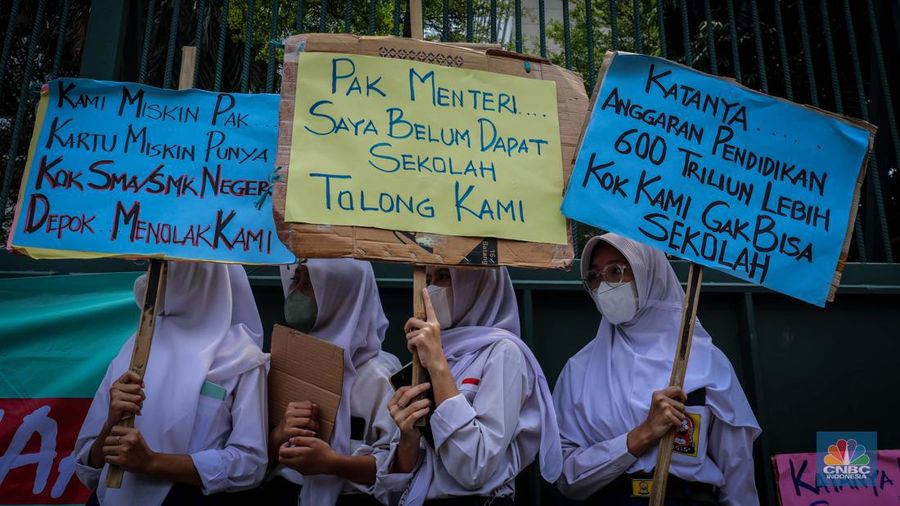 KAMI MISKIN PAK
KARTU MISKIN PUNYA
KOK SMA/SMK NEGERI
DEPOK MENOLAK KAMI
PAK MENTERI....
SAYA BELUM DAPAT
SEKOLAH
TOLONG KAMI
KATANYA....
ANGGARAN PENDIDIKAN
600 TRILIUN LEBIH
KOK KAMI GAK BISA
SEKOLAH
KATANYA
CNBC
INDONESIA